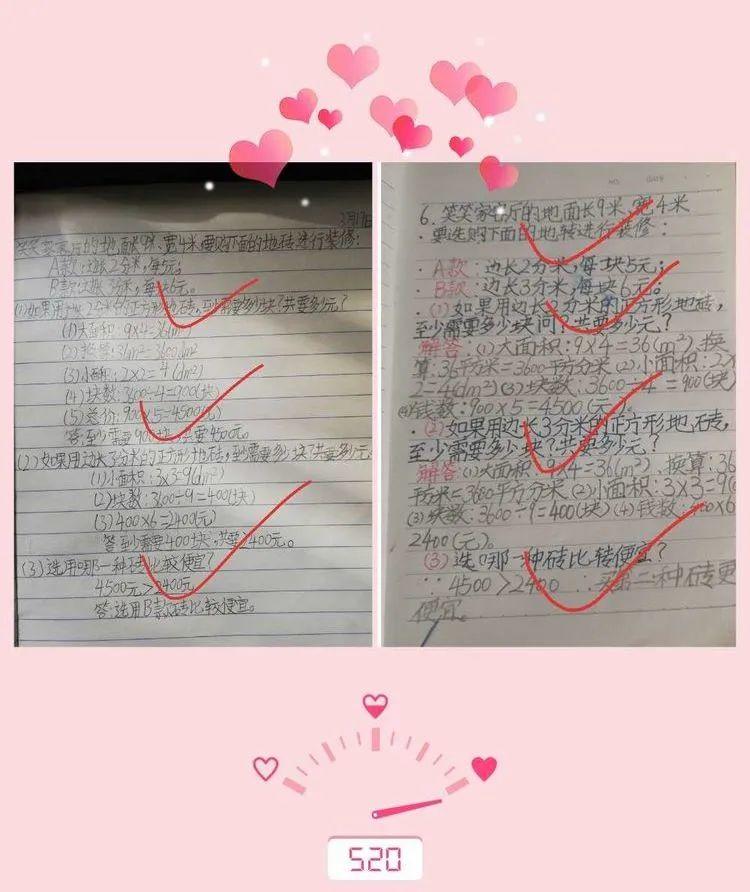 3月17日
笑笑家客厅的地面长9米、宽4米,要购下面的地砖进行装修:
A款:边长2分米,每5元;
B款:边长3分米,每块6元。
(1)如果用边长2分米的正方形地砖,至少需要多少块?共要多少元?
(1)大面积:9×4=36(m²)
(2)换算:36m²=3600dm²
(3)小面积:2×2=4(dm²)
(4)块数:3600÷4=900(块)
(5)总价:900×5=4500(元)
答:至少需要900块,共要4500元。
(2)如果用边长3分米的正方形地砖,至少需要多少块?共要多少元
(1)小面积:3×3=9(dm²)
(2)块数:3600÷9=400(块)
(3)400×6=2400(元)
答:至少需要400块,共要2400元。
(3)选用哪一种砖比较便宜?
4500元>2400元
答:选用B款砖比较便宜。
6.笑笑家客厅的地面长9米,宽4米
要选购下面的地砖进行装修:
A款:边长2分米,每块5元;
B款:边长3分米,每块6元。
(1)如果用边长2分米的正方形地砖,
至少需要多少块问?共要多少元?
解答:(1)大面积:9×4=36(m²) 换
算:36平方米=3600平方分米(2)小面积:2×
2=4(dm²)(3)块数:3600÷4=900(块)
(4)钱数:900×5=4500(元)。
(2)如果用边长3分米的正方形地砖,
至少需要多少块?共要多少元?
解答:(1)大面积:9×4=36(m²) 换算:36
平方米=3600平方分米(2)小面积:3×3=9(
(3)块数:3600÷9=400(块)(4)钱数:400×6
2400(元)。
(3)选哪一种砖比较便宜?
∵4500>2400 ∴买第二种砖更
便宜。
520